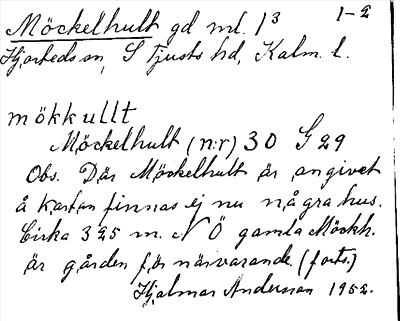 Möckelhult gd ml. 1³ 1-2
Hjorteds sn, S Tjusts hd, Kalm. l.
mökkullt
Möckelhult (n:r) 30 G 29
Obs. Där Möckelhult är angivet
å kartan finnas ej nu några hus.
Cirka 325 m. N Ö gamla Möckh.
är gården för närvarande. (forts.)
Hjalmar Andersson 1952.